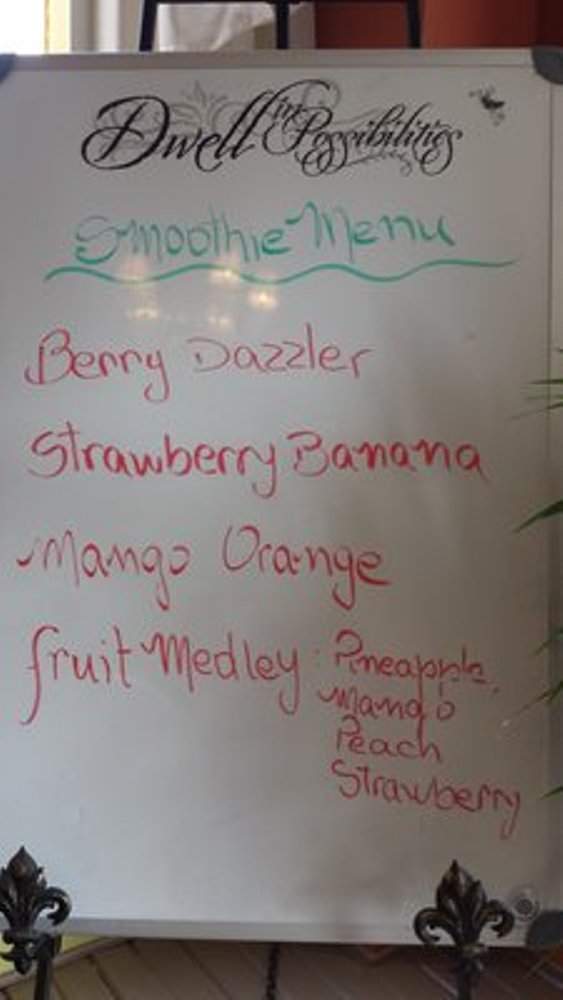 Dwell in Possibilities
Smoothie Menu
Berry Dazzler
Strawberry Banana
Mango Orange
fruit Medley: Pineapple,
Mango
Peach
Strawberry